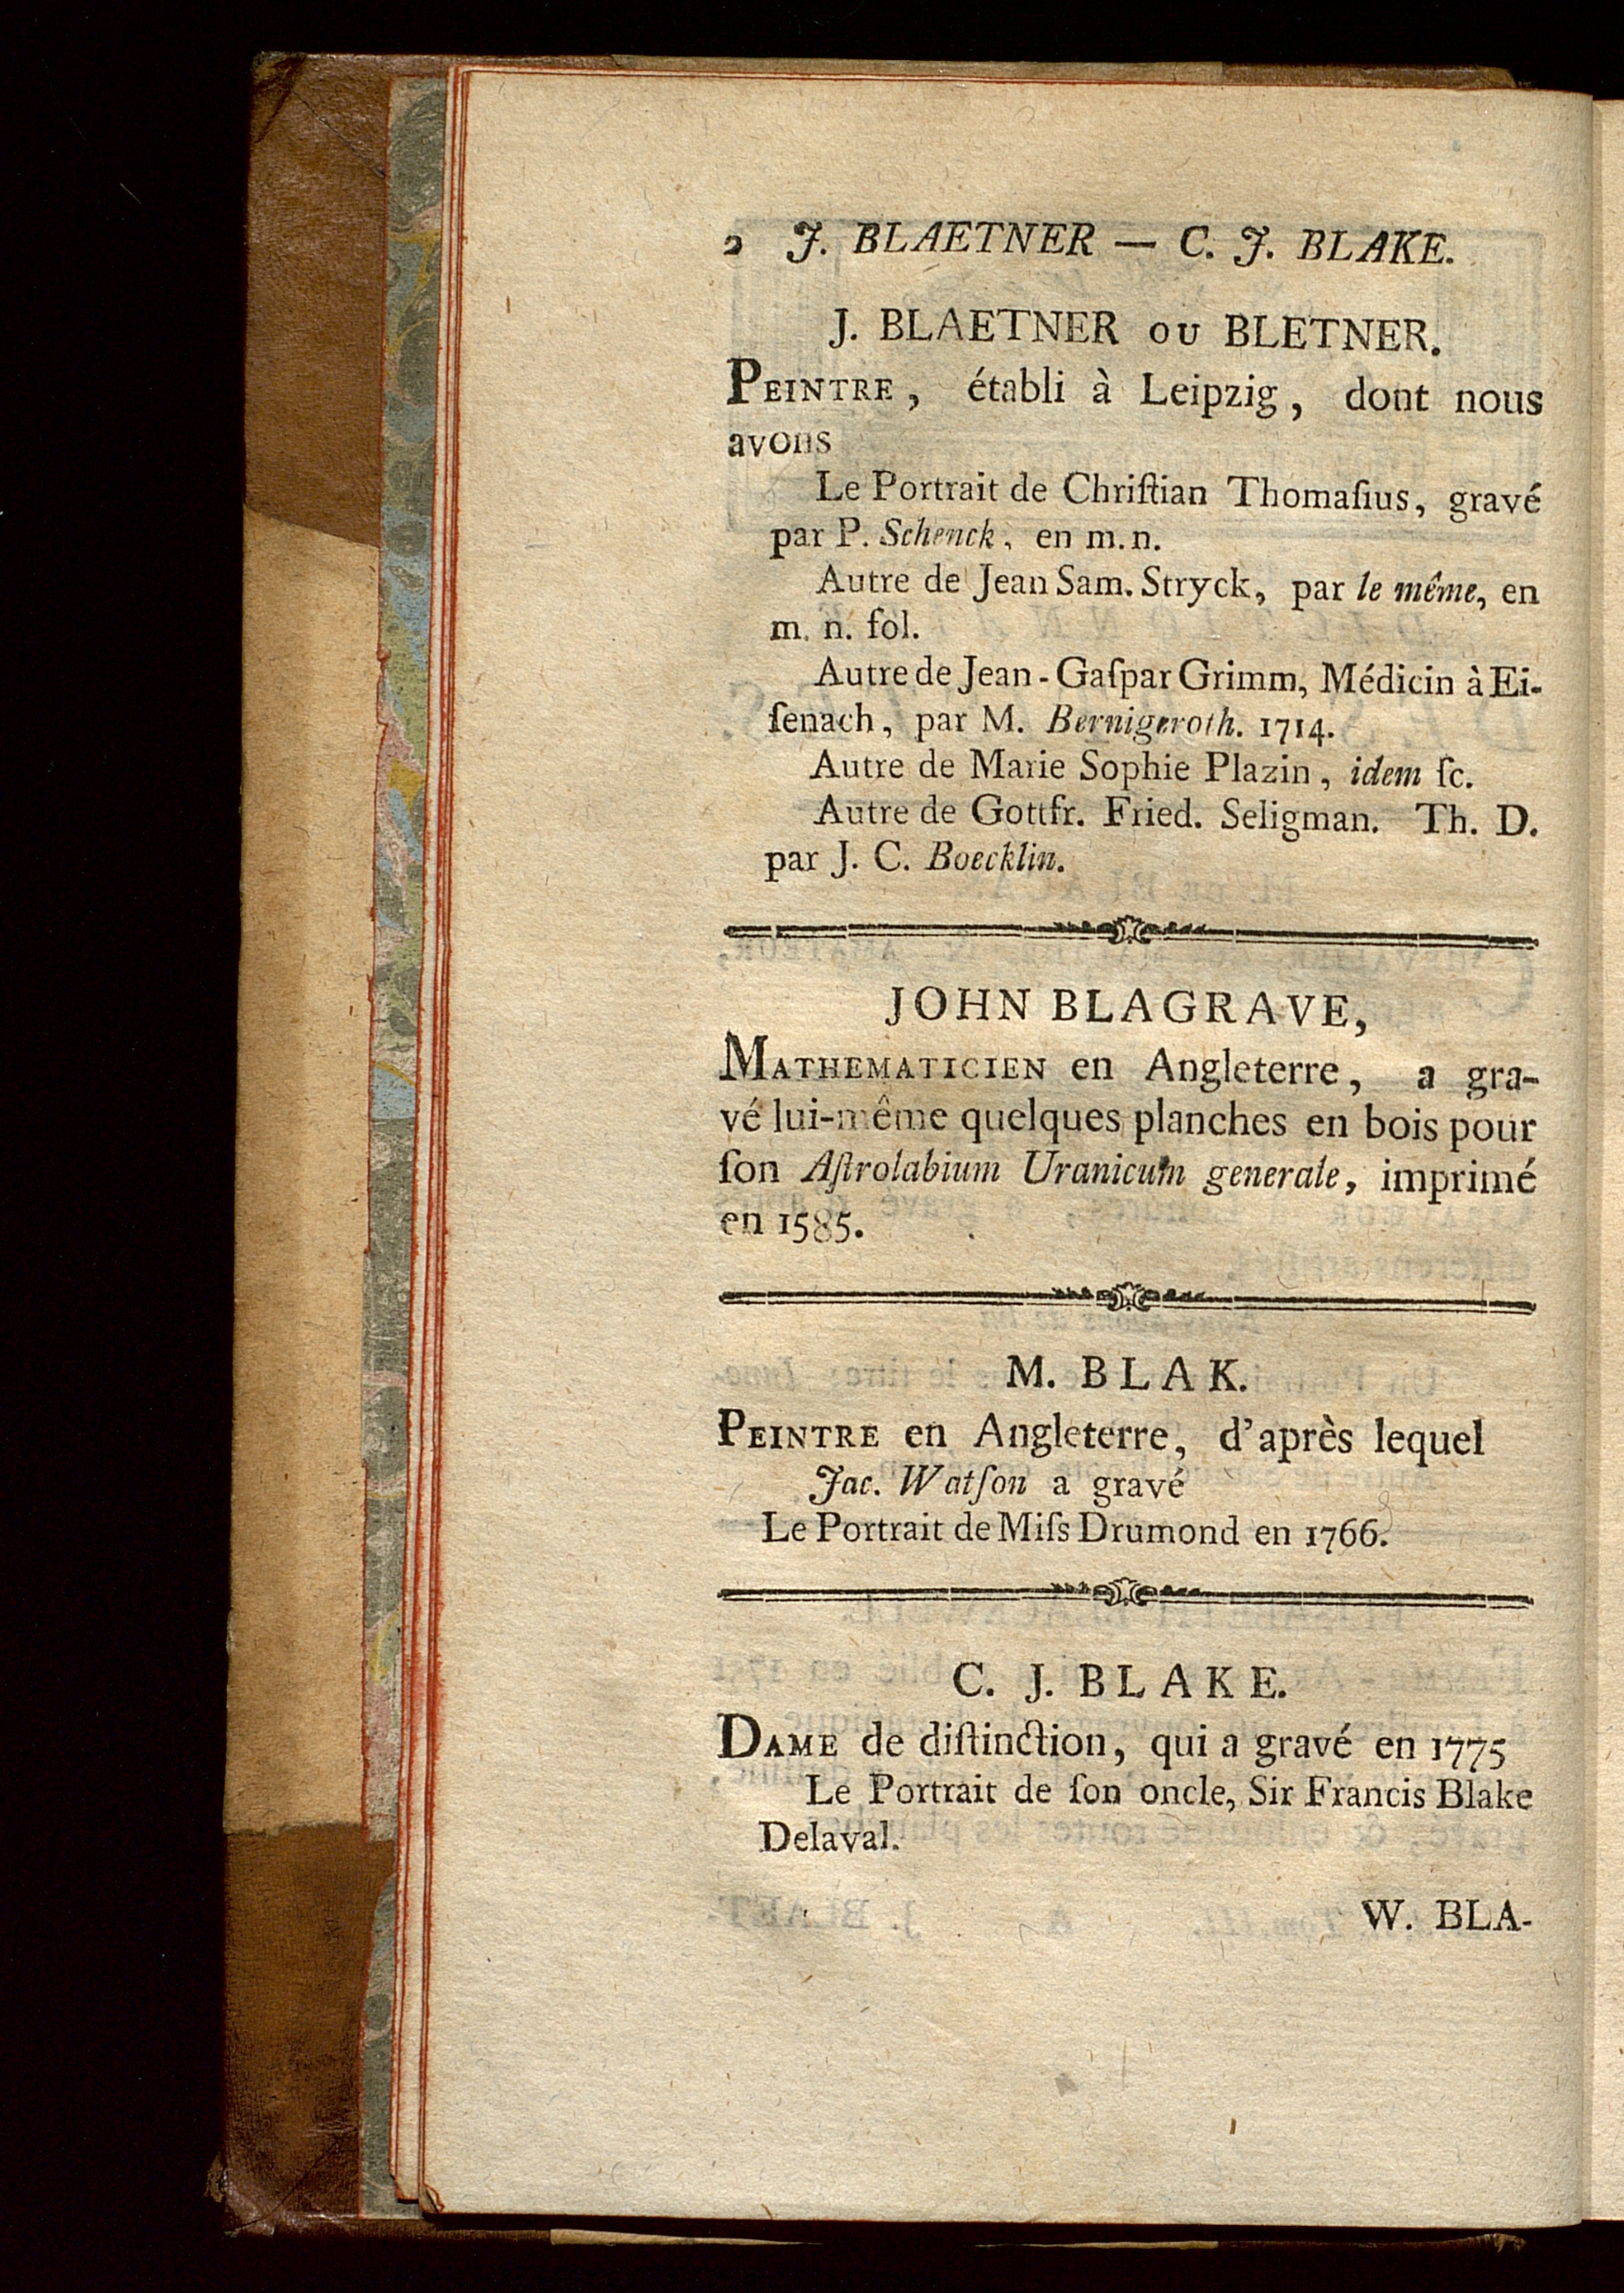 2 J. BLAETNER — C. J. BLAKE.
J. BLAETNER OU BLETNER.
PEINTRE, établi à Leipzig, dont nous
avons
Le Portrait de Chriſtian Thomaſius, gravé
par P. Schenck, en m. n.
Autre de Jean Sam. Stryck, par le même, en
m. n. fol.
Autre de Jean-Gaſpar Grimm, Médicin à Ei-
ſenach, par M. Bernigeroth. 1714.
Autre de Marie Sophie Plazin, idem ſc.
Autre de Gottfr. Fried. Seligman. Th. D.
par J. C. Boecklin.
JOHN BLAGRAVE,
MATHEMATICIEN en Angleterre, a gra-
vé lui-même quelques planches en bois pour
ſon Aſtrolabium Uranicum generale, imprimé
en 1585.
M. BLAK.
PEINTRE en Angleterre, d'après lequel
Jac. Watſon a gravé
Le Portrait de Miſs Drumond en 1766.
C. J. BLAKE.
DAME de diſtinction, qui a gravé en 1775
Le Portrait de ſon oncle, Sir Francis Blake
Delaval.
W. BLA-